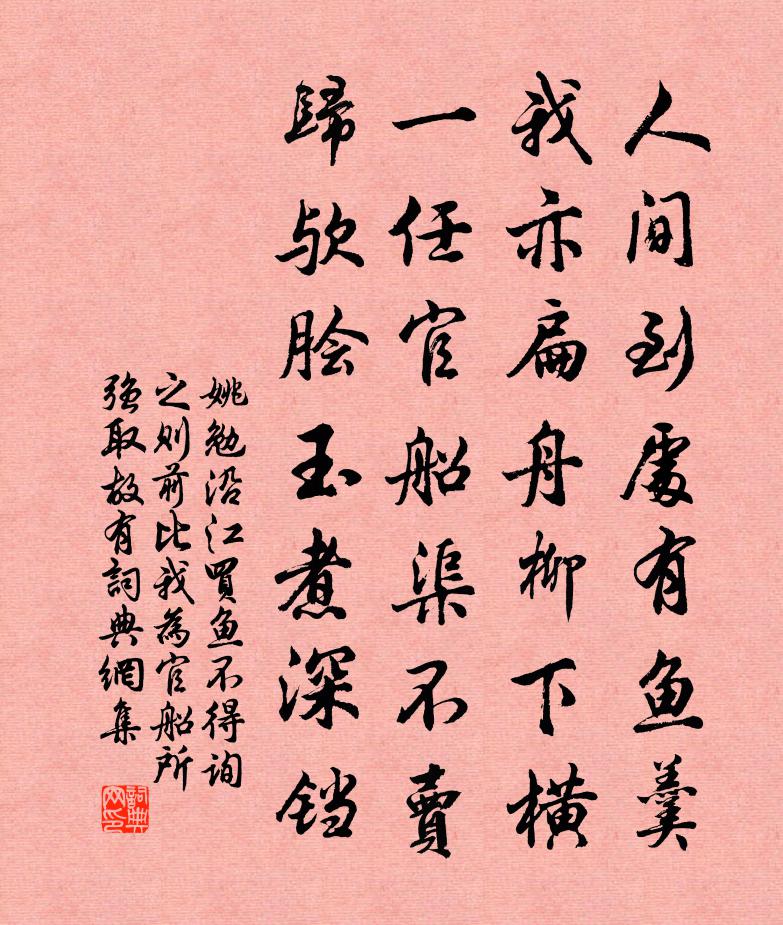 人间到處有鱼羹
我亦扁舟柳下橫
一任官船渠不賣
歸欤脍玉煮深铛
姚勉沿江買鱼不得询
之则前比我為官船所
强取故有詞典網集
詞典网印